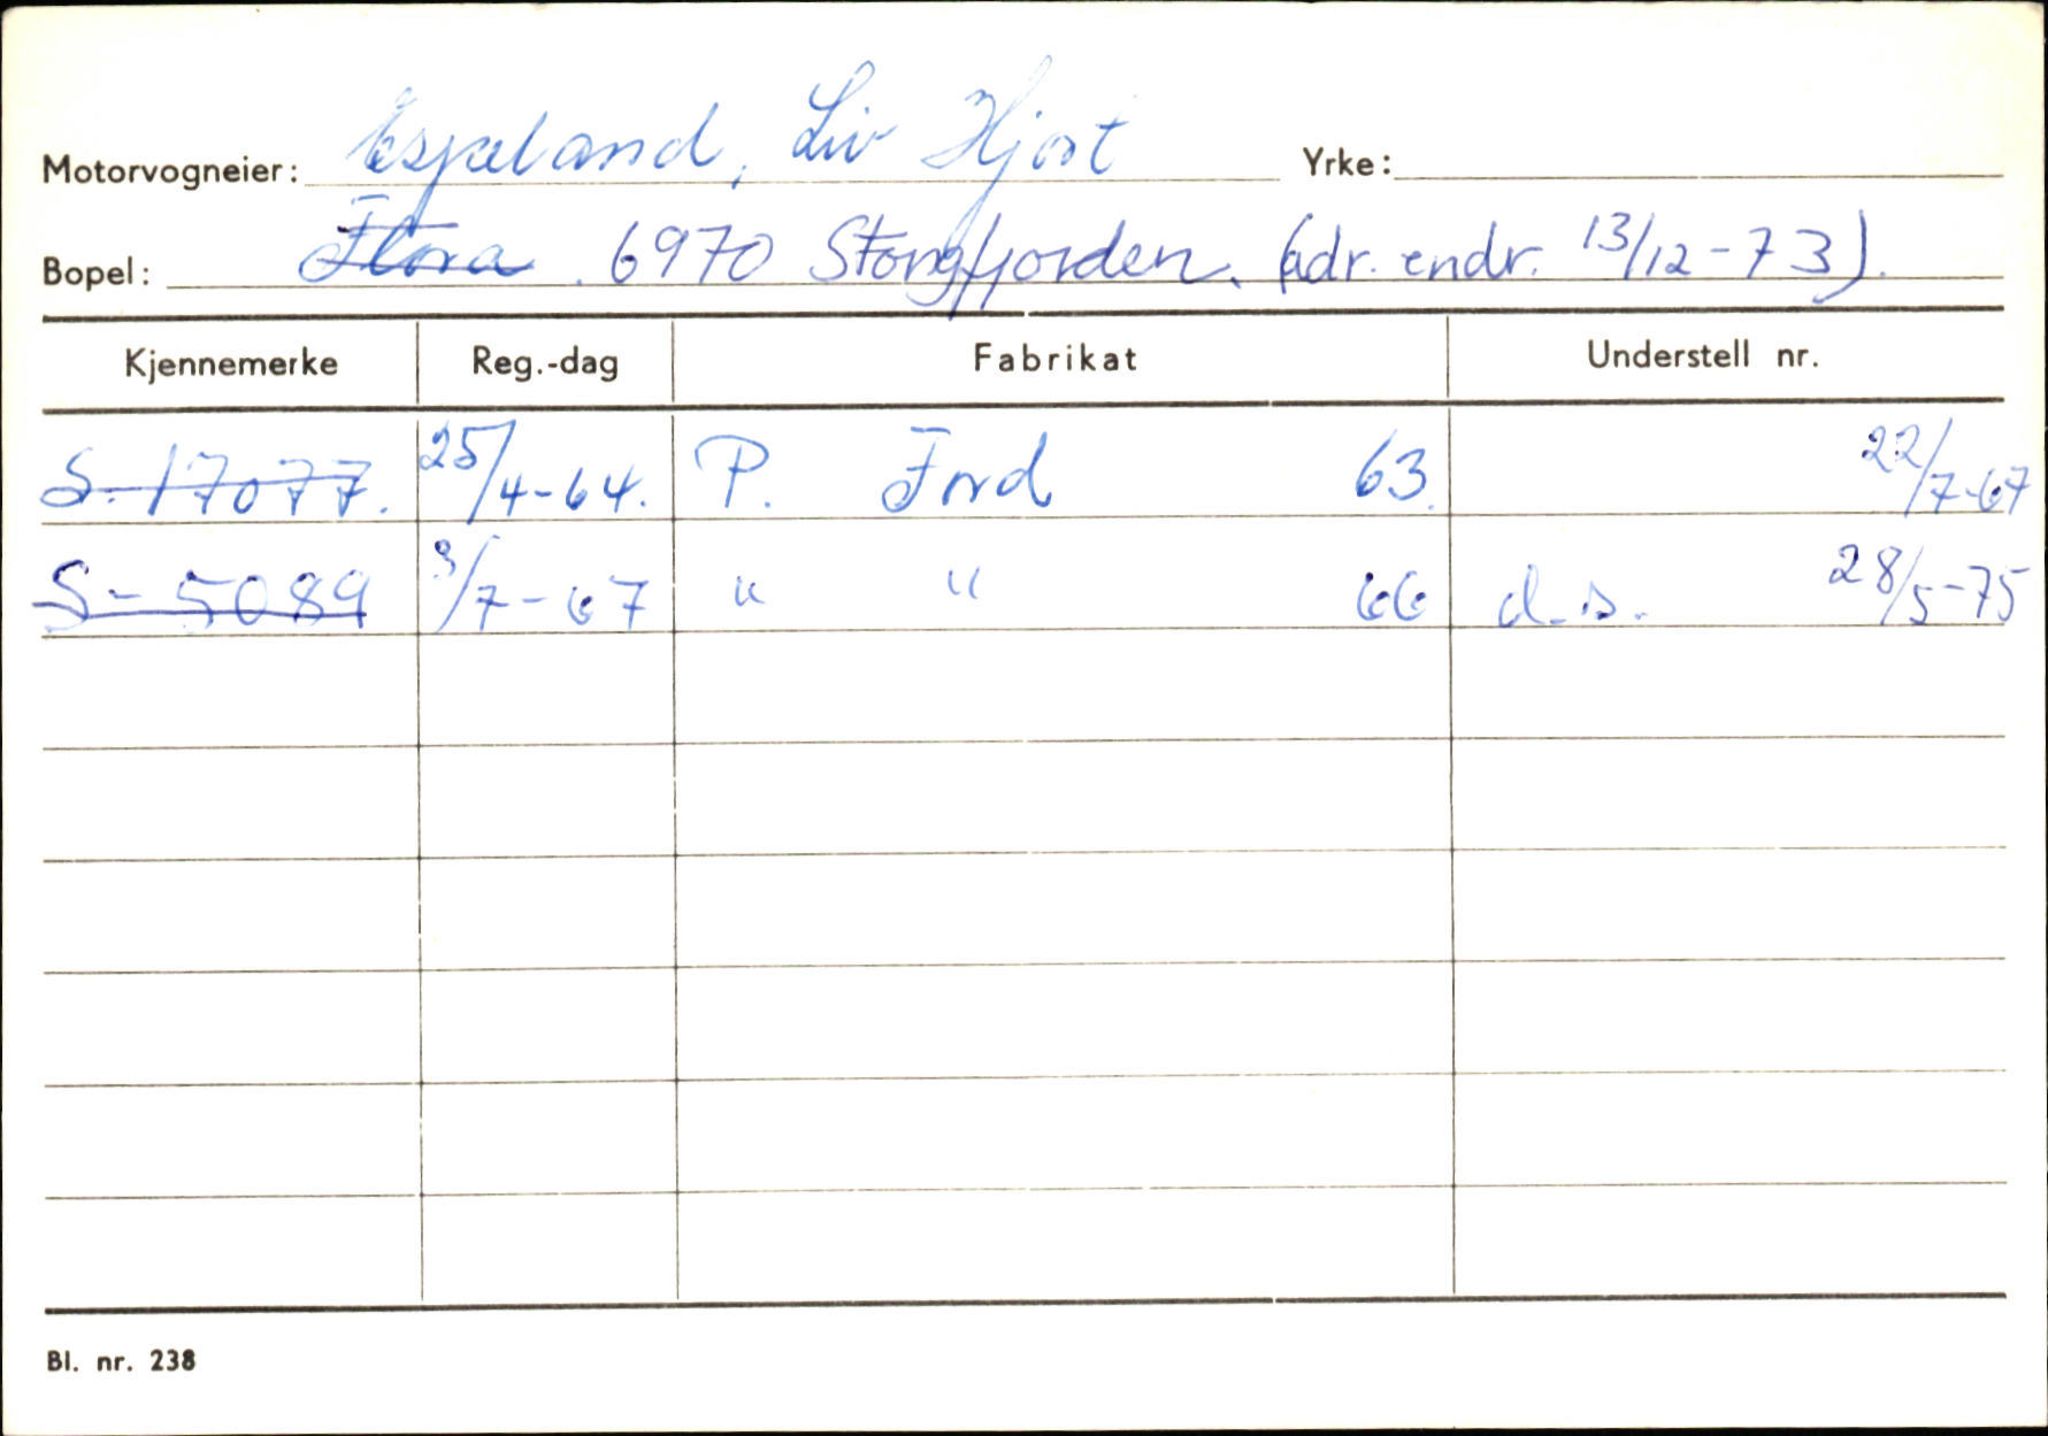 Motorvogneier: Espeland, Liv Hjort Yrke:
Bopel: Flora. 6970 Stongfjorden. (adr. endr. 13/12-73).
Kjennemerke Reg.-dag Fabrikat Understell nr.
S. 17077. 25/4-64. P. Ford 63. 22/7-67
S- 5089 3/7-67 " " 66 d.s. 28/5-75
Bl. nr. 238